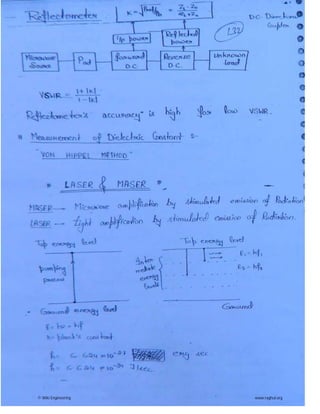 Reflectometer
K = √Pref/Pin = Z_L - Z_0 / Z_L + Z_0
D.C → Directional Coupler
132
I/p power
Reflected power
Microwave Source
Pad
forward D.C.
Reverse D.C.
Unknown load
VSWR = 1+|K| / 1-|K|
Reflectometer's accuracy is high for low VSWR.
Measurement of Dielectric Constant :-
"VON HIPPEL METHOD"
* LASER & MASER *
MASER → Microwave amplification by stimulated emission of Radiation
LASER → Light amplification by stimulated emission of Radiation.
Top energy level
Top energy level
pumping process
Inter mediate energy levels
E₁ = hf₁
E₂ = hf₂
Ground energy level
Ground
E = hν = hf
h = plank's constant
h = 6.624 × 10⁻²⁷ erg sec
h = 6.624 × 10⁻³⁴ J/sec.
© Wiki Engineering
www.raghul.org